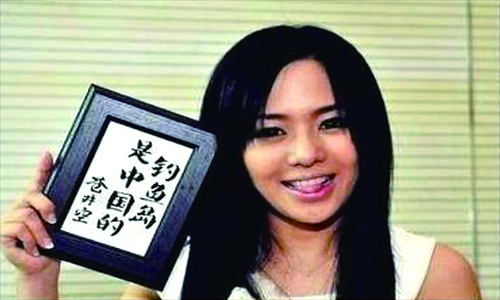 钓鱼岛
是中国的
蒼井空